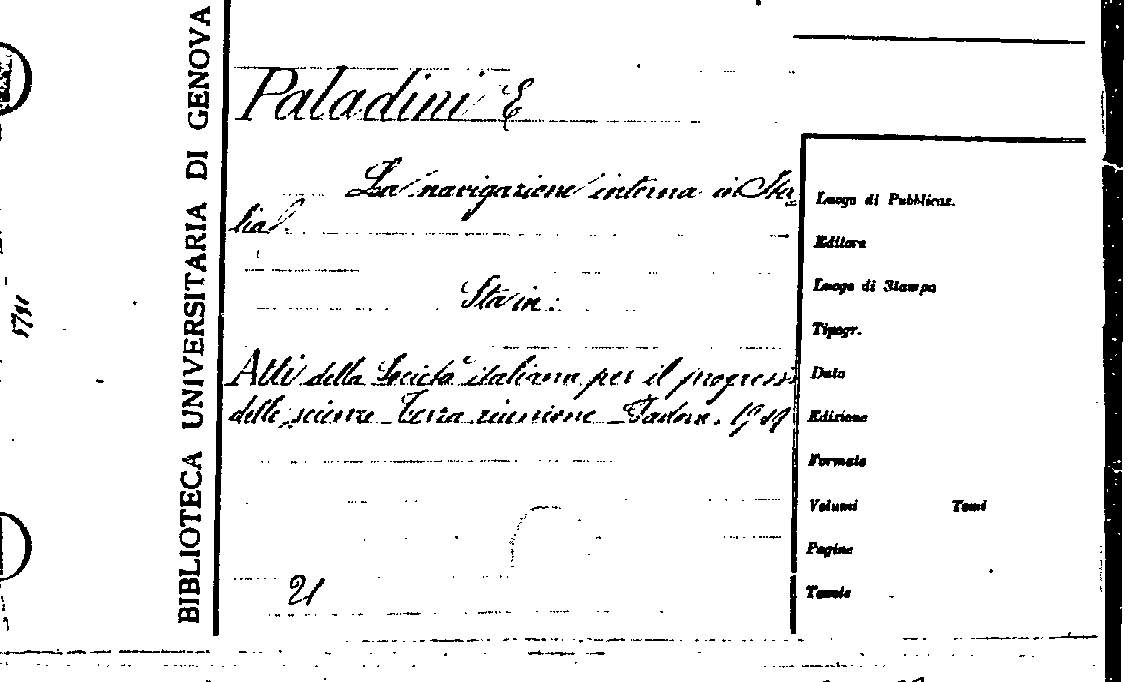 BIBLIOTECA UNIVERSITARIA DI GENOVA
Paladini E
La navigazione interna in Ita=
lia.
Sta in:
Atti della Società italiana per il progresso
delle scienze Terza riunione Padova. 1909
21
Luogo di Pubblicaz.
Editore
Luogo di Stampa
Tipogr.
Data
Edizione
Formato
Volumi Tomi
Pagine
Tavole